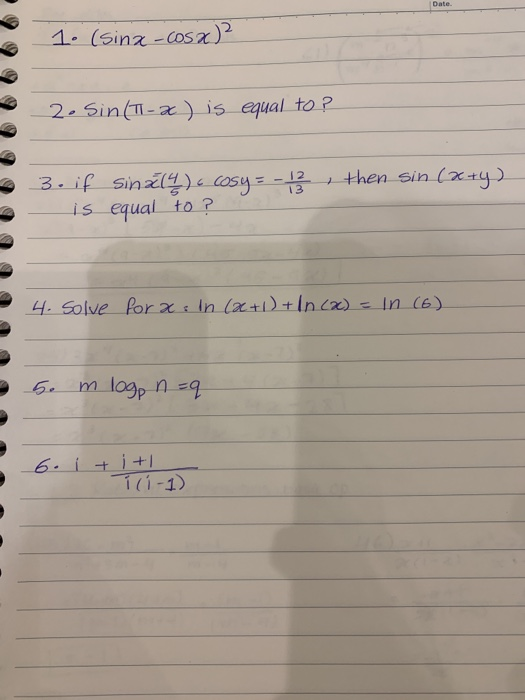 Date.
1. (sinx - cosx)²
2. Sin(π-x) is equal to?
3. if sinx=(4/5) & cosy = - 12/13 , then sin (x+y)
is equal to?
4. Solve for x : ln (x+1) + ln(x) = ln (6)
5. m logₚ n = q
6. i + i+1
i(i-1)